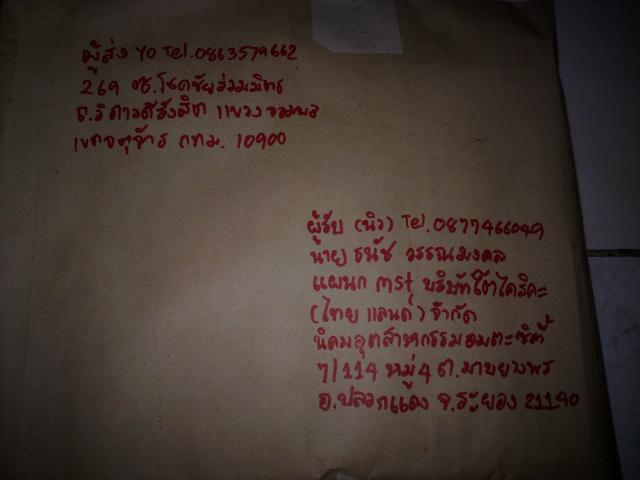 ผู้ส่ง YO Tel.0863579662
269 ซ.โชคชัยร่วมมิตร
ถ.วิภาวดีรังสิต แขวง จอมพล
เขตจตุจักร กทม. 10900
ผู้รับ (นิว) Tel.0877466049
นาย ธนัช วรรณมงคล
แผนก mst บริษัทโตไคริคะ
(ไทยแลนด์) จำกัด
นิคมอุตสาหกรรมอมตะซิตี้
7/114 หมู่ 4 ต.มาบยางพร
อ.ปลวกแดง จ.ระยอง 21140